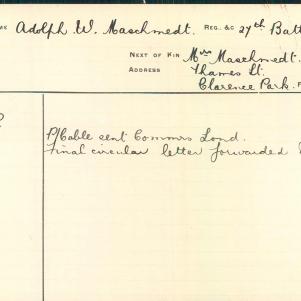 ME Adolph W. Maschmedt. REG. &C 27th Batt
NEXT OF KIN Mrs Maschmedt.
ADDRESS Thames St.
Clarence Park.
P/Cable sent Commrs Lond.
Final circular letter forwarded